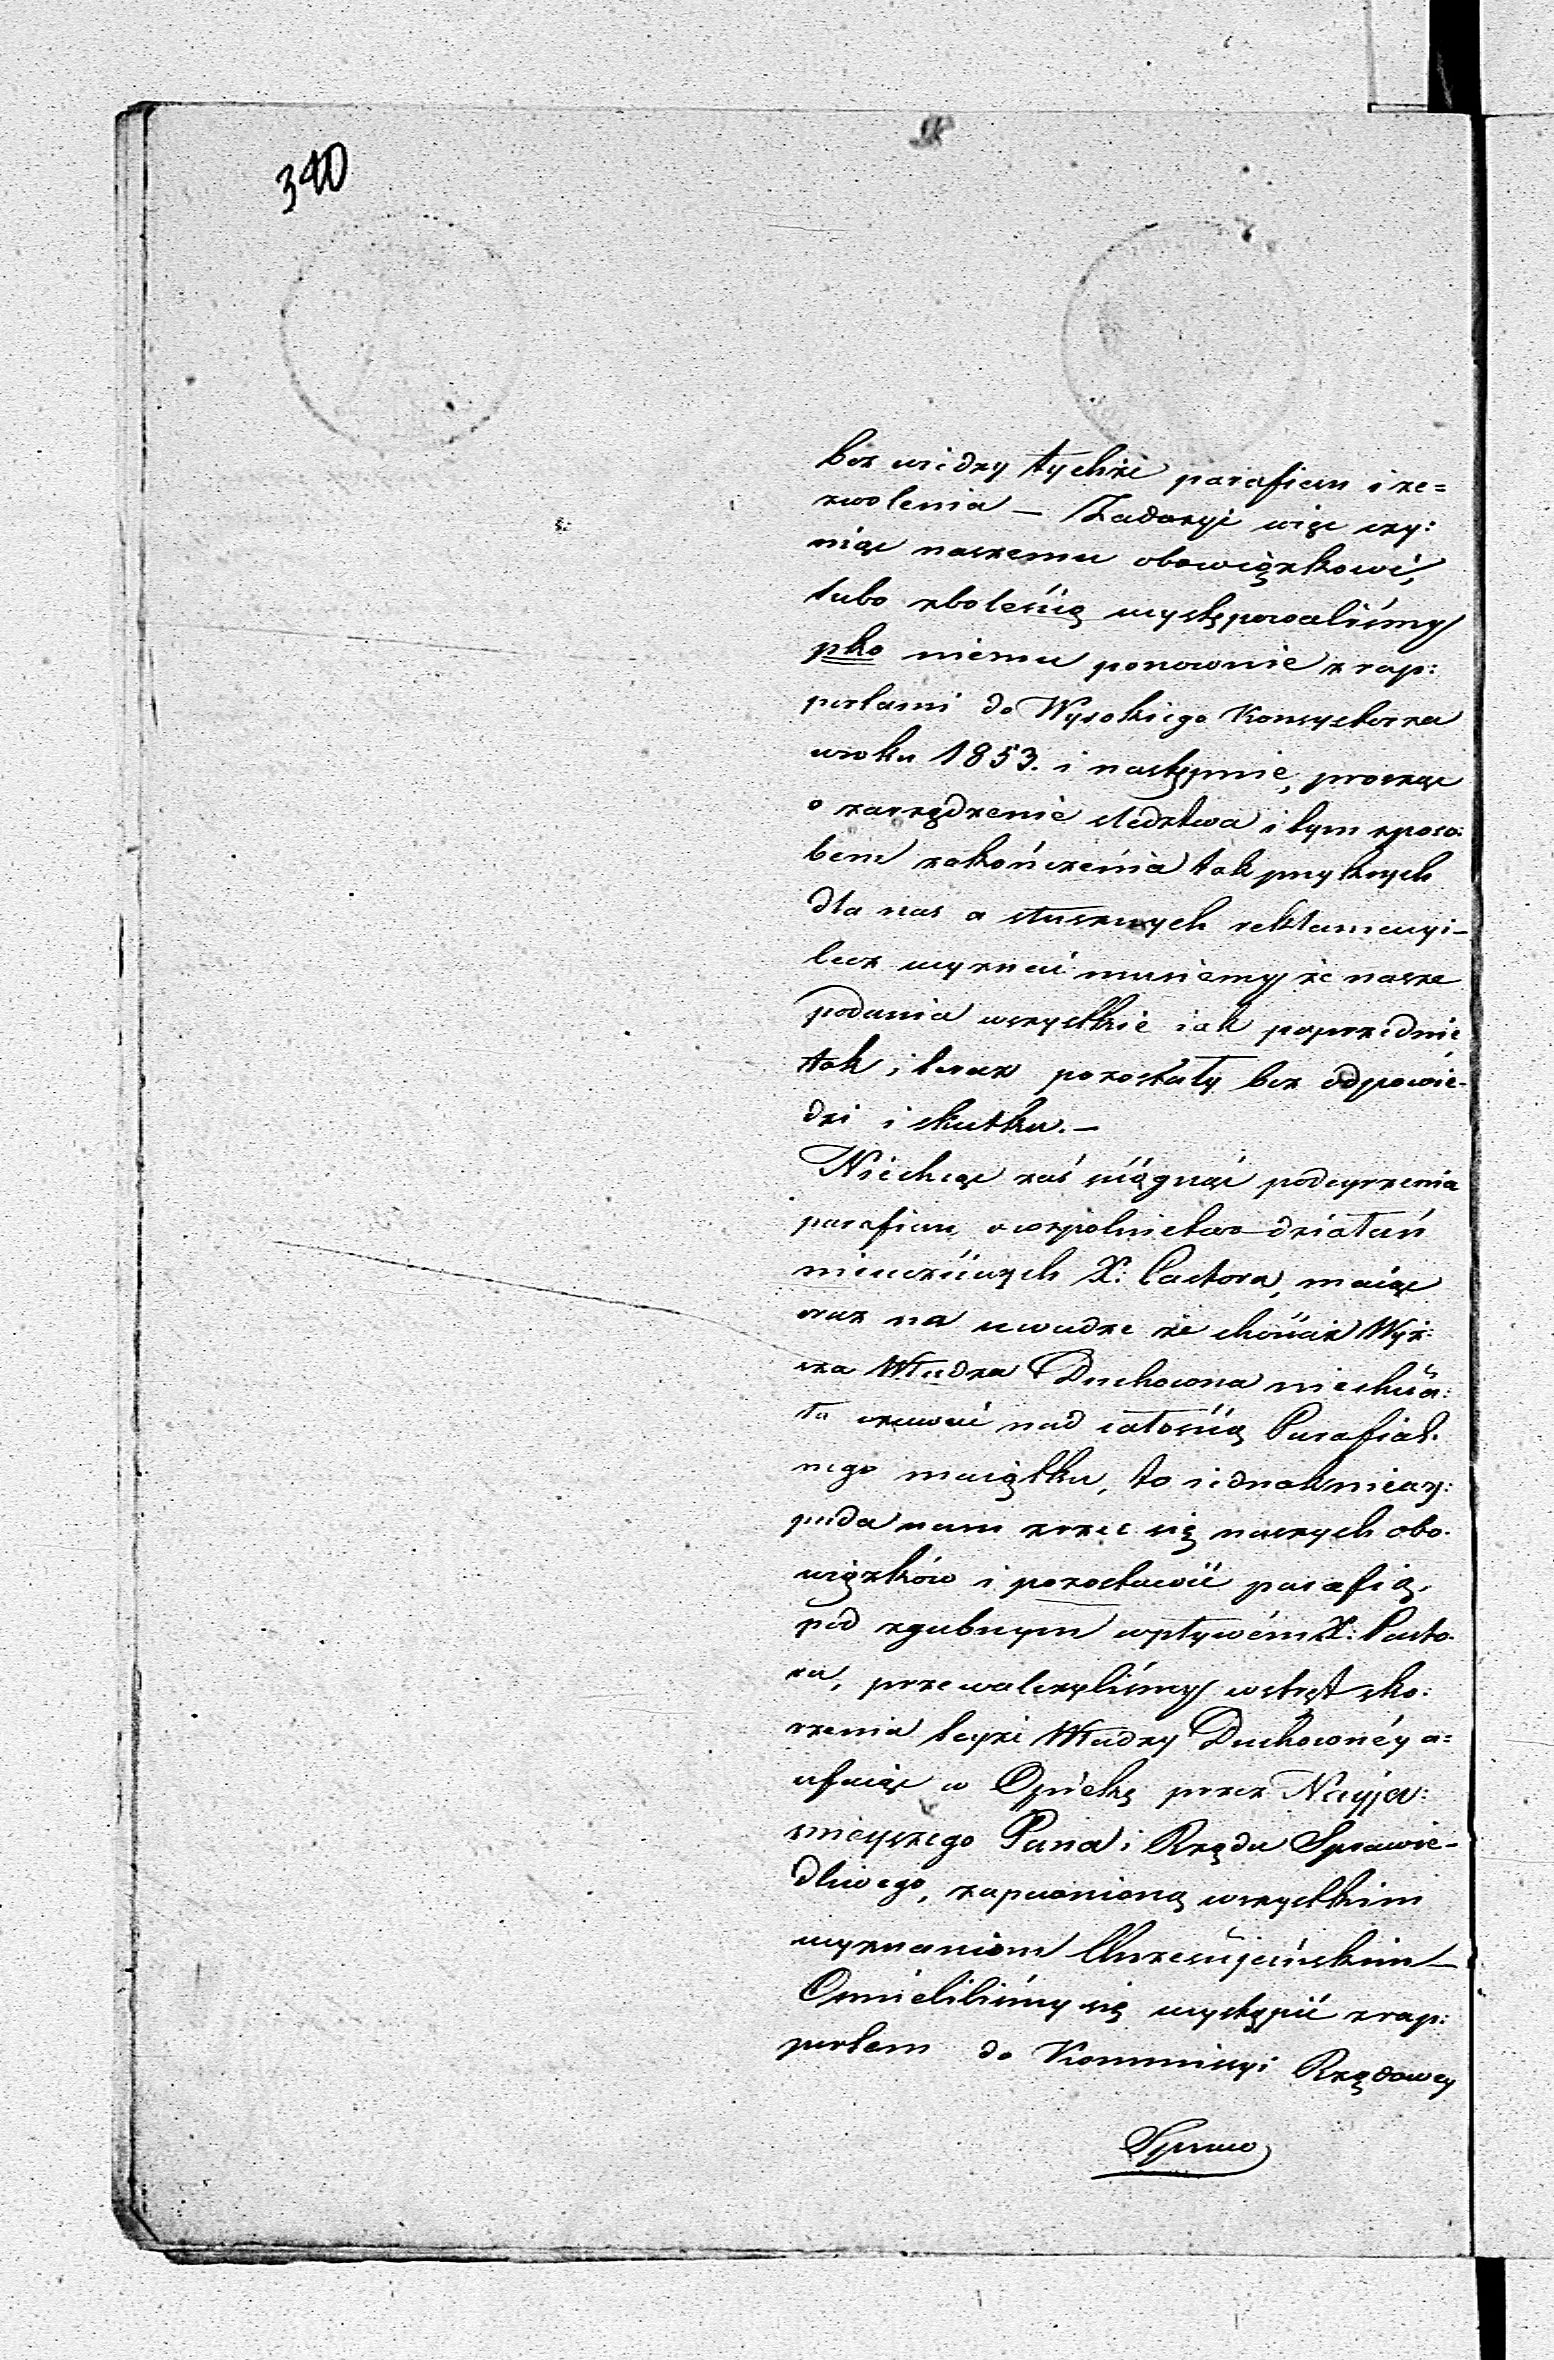 340
bez wiedzy tychże parafian i ze=
zwolenia – Zadosyć więc czy:
niąc naszemu obowiązkowi,
lubo zboleścią występowaliśmy
pko niemu ponownie z rap:
portami do Wysokiego Konsystorza
wroku 1853. i następnie, prosząc
o zarządzenie śledztwa i tym sposo:
bem zakończenia tak przykrych
dla nas a słusznych reklamacyi –
lecz wyznać musiemy że nasze
podania wszystkie iak poprzednie
tak i teraz pozostały bez odpowie-
dzi i skutku. –
Niechcąc zaś ściągnąć podeyrzenia
parafian, o wspolnictwo działań
nieuczciwych X: Pastora, maiąc
oraz na uwadze że chociaż Wyż:
sza Władza Duchowna niechcia:
ła czuwać nad całością Parafial-
nego maiątku, to iednak niewy:
pada nam zrzec się naszych obo-
wiązków i pozostawić parafią,
pod zgubnym wpływem X: Pasto-
ra, przewalczyliśmy wstręt sko:
rzenia teyże Władzy Duchownéy a=
ufaiąc w Opiekę przez Nayja:
snieyszego Pana i Rządu Sprawie-
dliwego, zapewnioną wszystkim
wyznaniom Chrześcijańskim –
Ośmieliliśmy się wystąpić z rap:
portem do Kommissyi Rządowey
Spraw